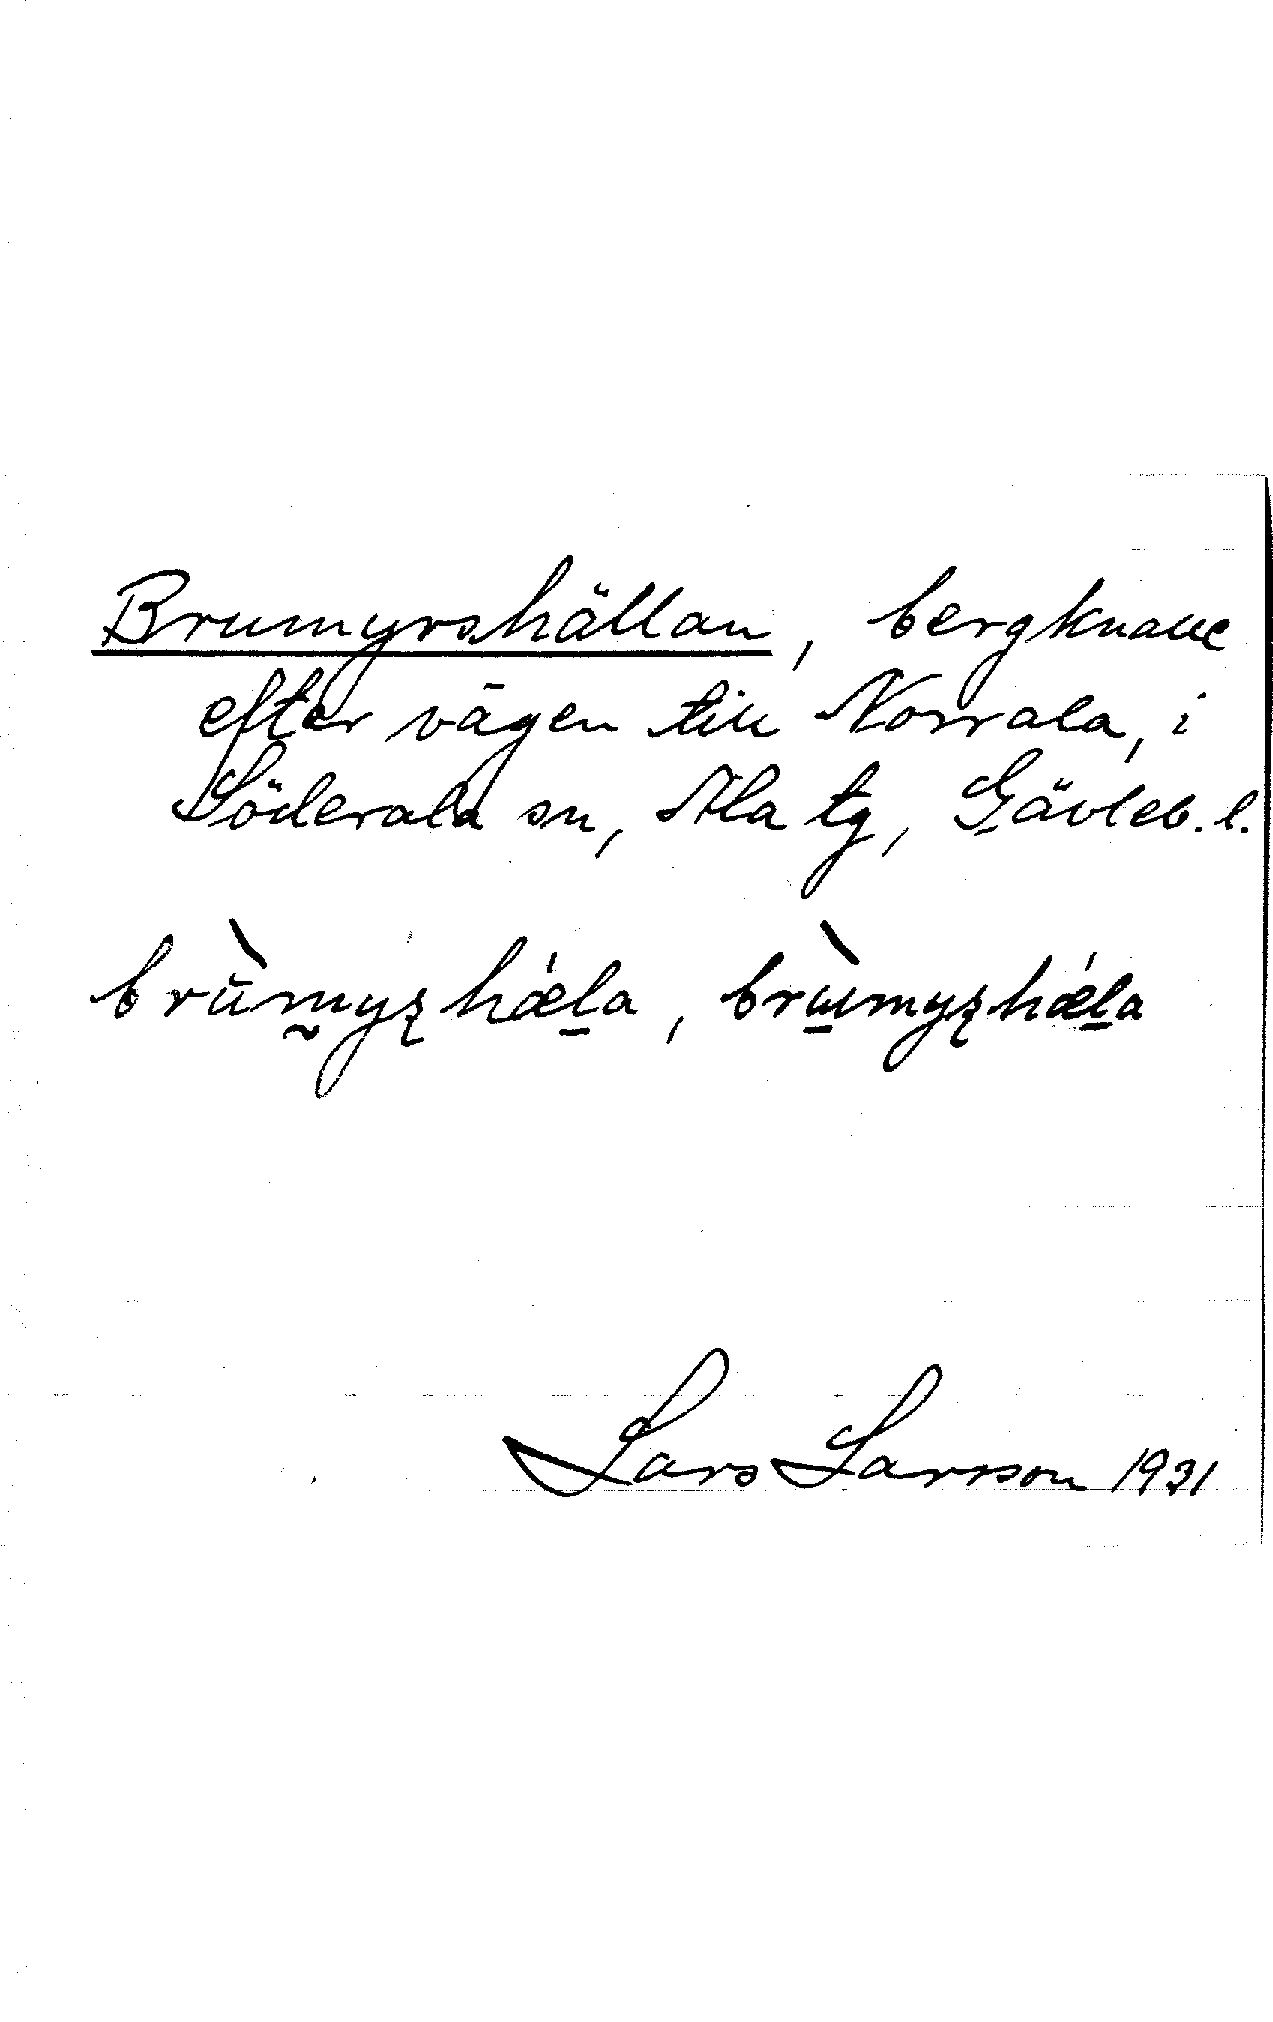 Brumyrshällan, bergknalle
efter vägen till Norrala, i
Söderala sn, Ala tg, Gävleb. l.
Lars Larsson 1931